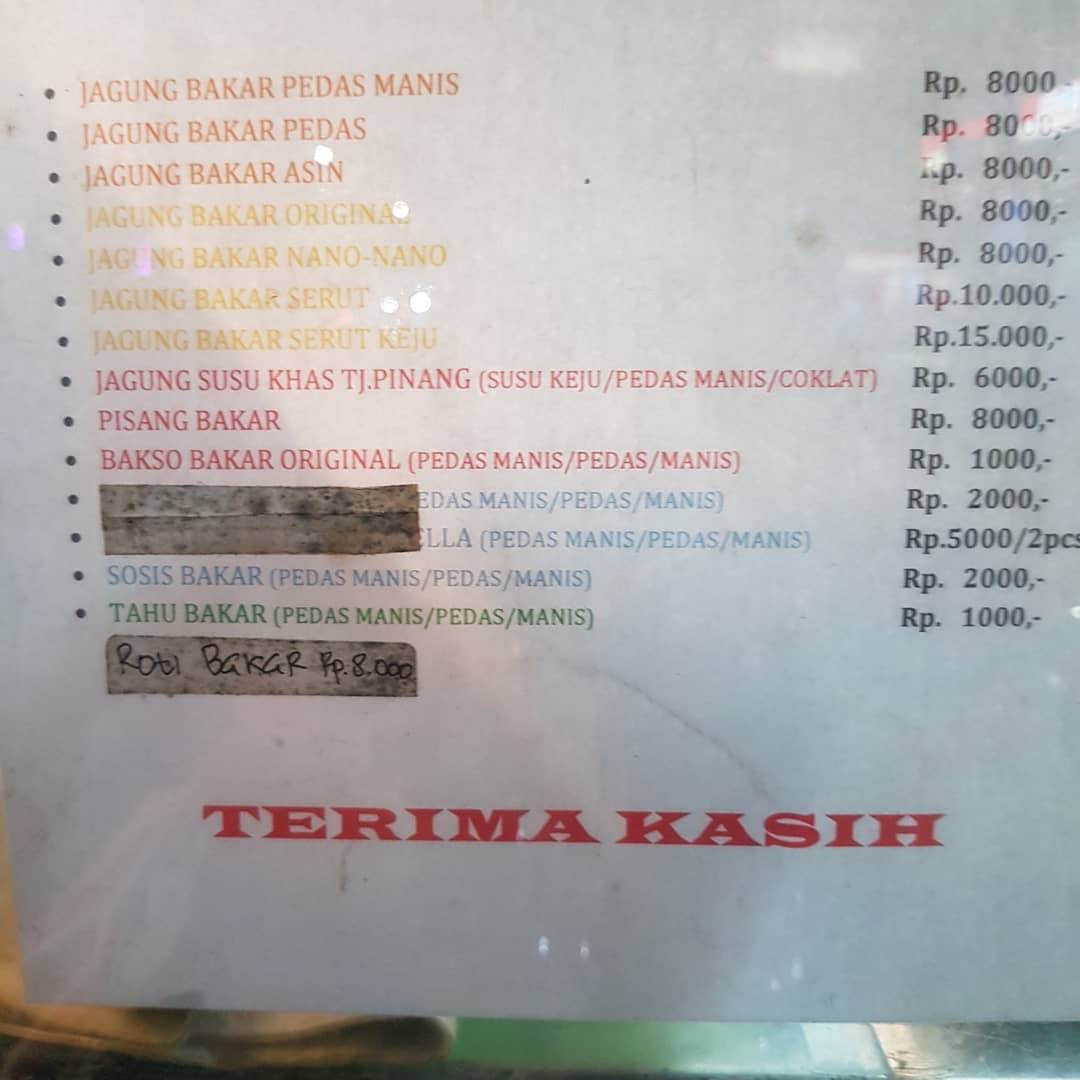 • JAGUNG BAKAR PEDAS MANIS Rp. 8000,-
• JAGUNG BAKAR PEDAS Rp. 8000,-
• JAGUNG BAKAR ASIN Rp. 8000,-
• JAGUNG BAKAR ORIGINAL Rp. 8000,-
• JAGUNG BAKAR NANO-NANO Rp. 8000,-
• JAGUNG BAKAR SERUT Rp.10.000,-
• JAGUNG BAKAR SERUT KEJU Rp.15.000,-
• JAGUNG SUSU KHAS TJ.PINANG (SUSU KEJU/PEDAS MANIS/COKLAT) Rp. 6000,-
• PISANG BAKAR Rp. 8000,-
• BAKSO BAKAR ORIGINAL (PEDAS MANIS/PEDAS/MANIS) Rp. 1000,-
• EDAS MANIS/PEDAS/MANIS) Rp. 2000,-
• ELLA (PEDAS MANIS/PEDAS/MANIS) Rp.5000/2pcs
• SOSIS BAKAR (PEDAS MANIS/PEDAS/MANIS) Rp. 2000,-
• TAHU BAKAR (PEDAS MANIS/PEDAS/MANIS) Rp. 1000,-
Roti BAKAR Rp.8.000
TERIMA KASIH